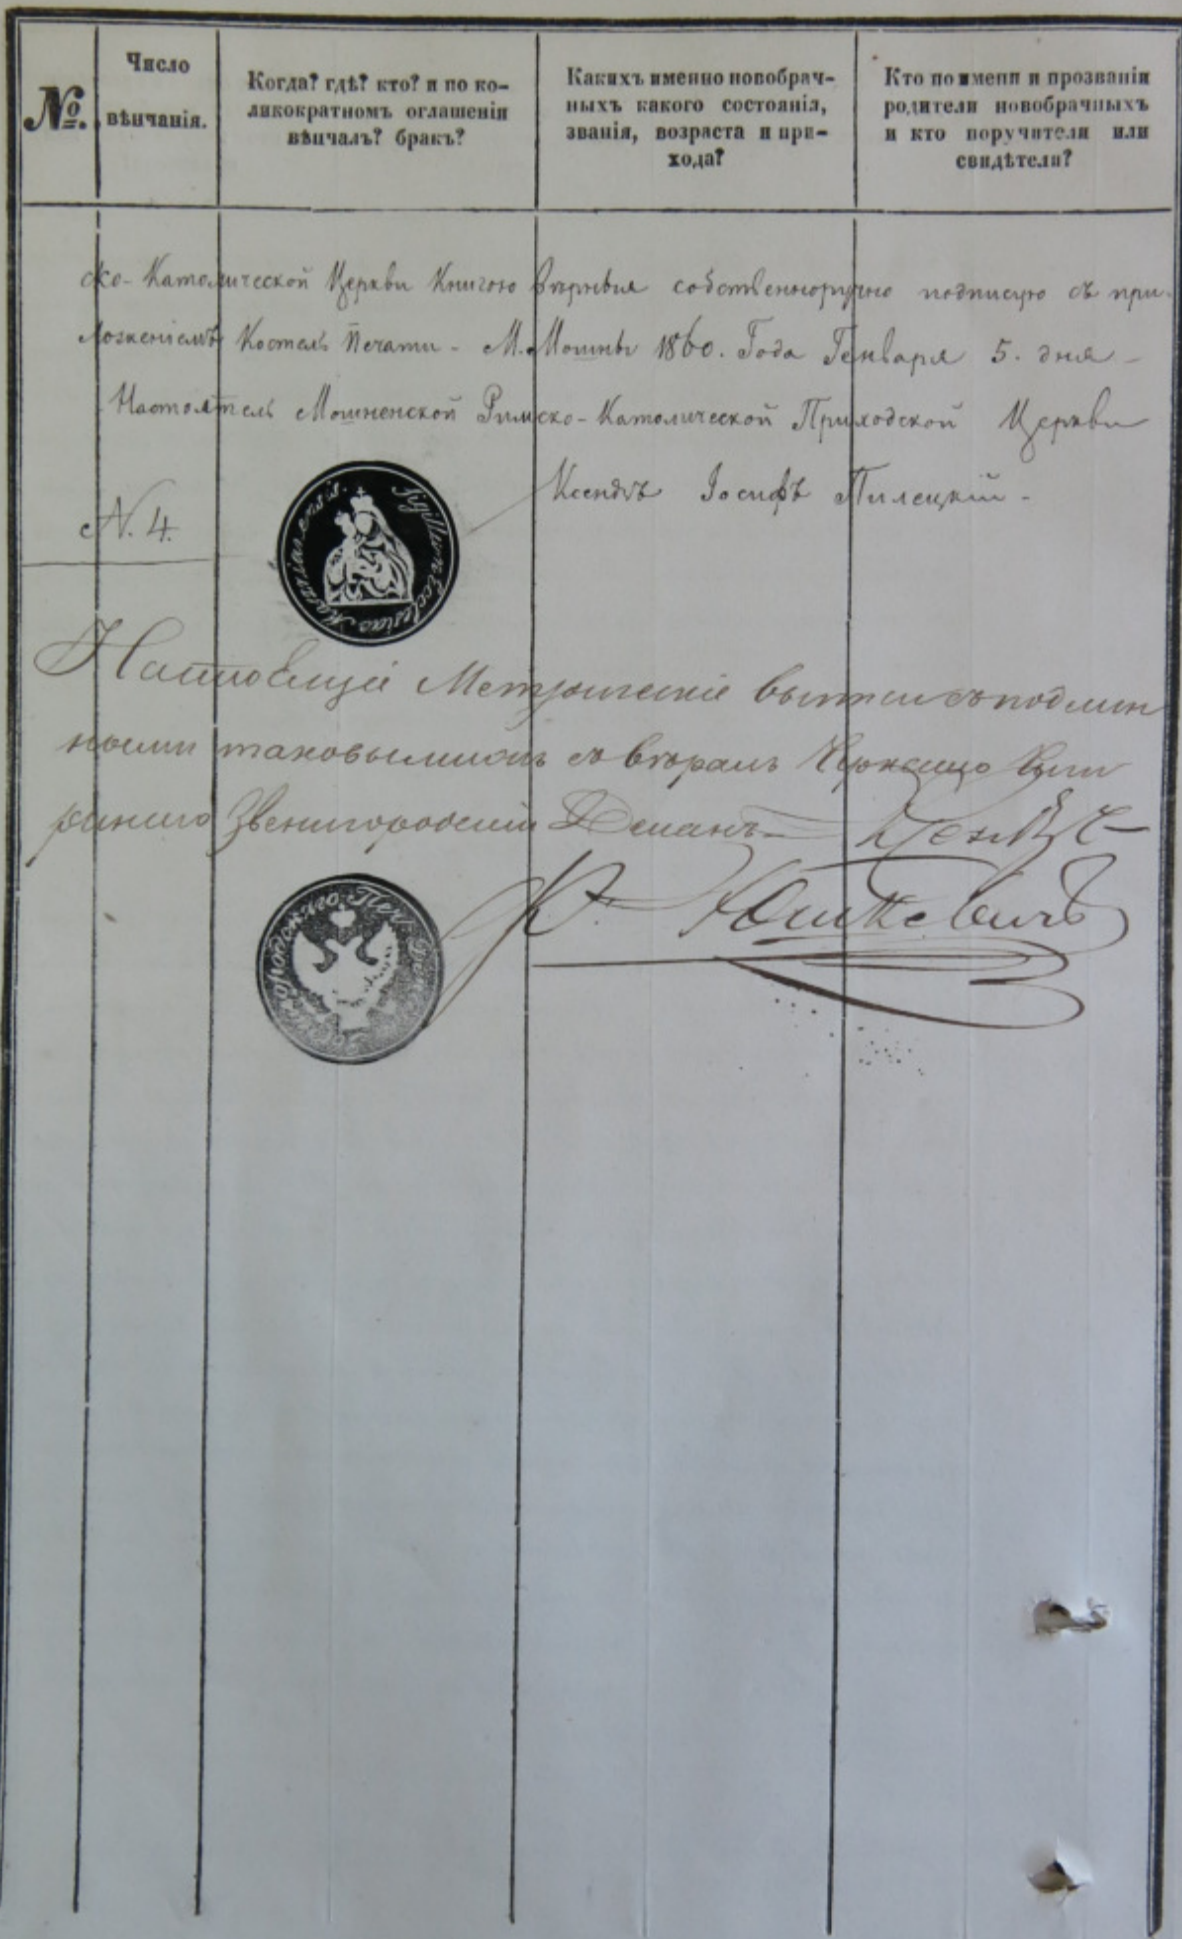 №.
Число
вѣнчанія.
Когда? гдѣ? кто? и по ко-
ликократномъ оглашеніи
вѣнчалъ? бракъ?
Какихъ именно новобрач-
ныхъ какого состоянія,
званія, возраста и при-
хода?
Кто по имени и прозванія
родители новобрачныхъ
и кто поручители или
свидѣтели?
ско-Католической Церкви Книгою собственноручно подписую съ при-
ложеніемъ Костел. Печати - М. Мошны 1860. Года Генваря 5. дня -
Настоятель Мошненской Римско-Католической Приходской Церкви
Ксендзъ Іосифъ Пилецкій -
N. 4.
Sigillum Ecclesiae
Настоящія Метрическія съ подлин
ными таковыми
Звенигородскій Деканъ
К. Юшкевичъ